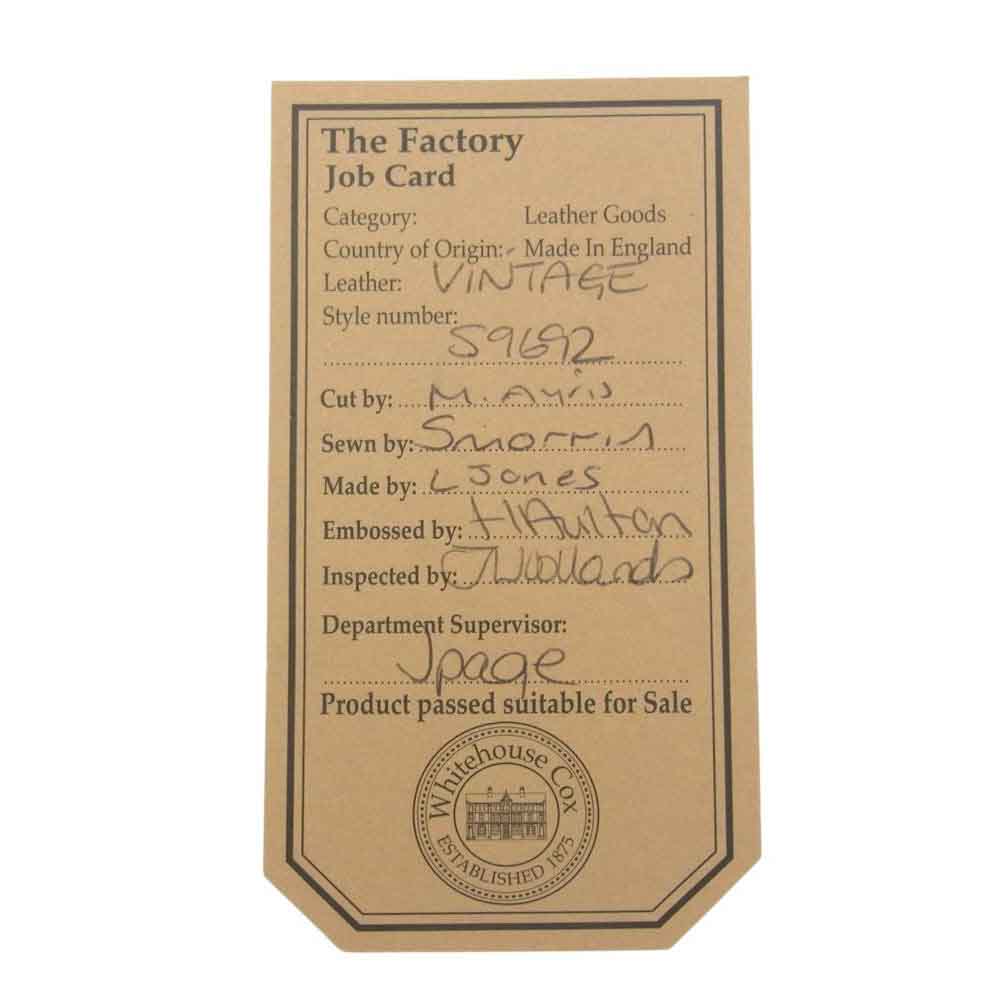 The Factory
Job Card
Category: Leather Goods
Country of Origin: Made In England
Leather: VINTAGE
Style number:
S9692
Cut by: M. Ayris
Sewn by: S Morris
Made by: L Jones
Embossed by: H Aulton
Inspected by: J Woollands
Department Supervisor:
J page
Product passed suitable for Sale
Whitehouse Cox
ESTABLISHED 1875